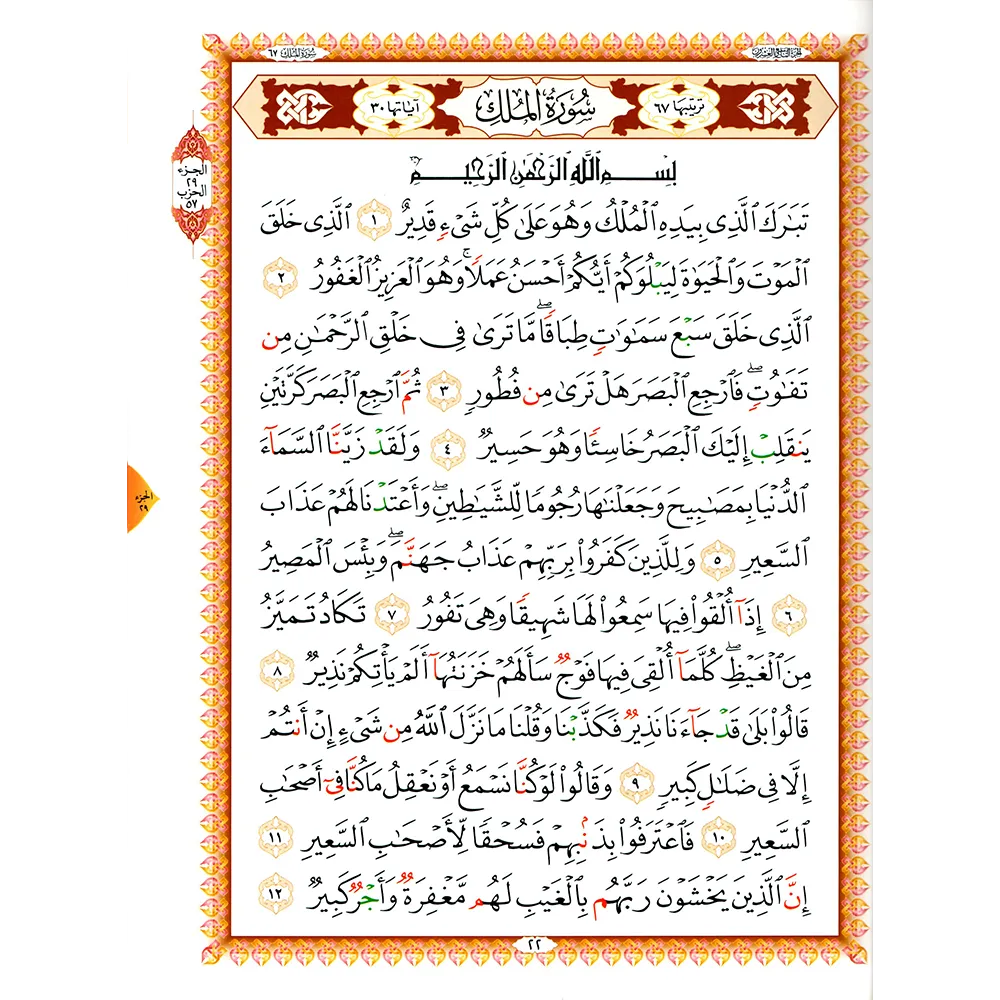 الجزء التاسع والعشرون
سورة الملك ٦٧
ترتيبها ٦٧
سُورَةُ الْمُلْكِ
آياتها ٣٠
بِسْمِ ٱللَّهِ ٱلرَّحْمَٰنِ ٱلرَّحِيمِ
الجزء
٢٩
الحزب
٥٧
تَبَٰرَكَ ٱلَّذِى بِيَدِهِ ٱلْمُلْكُ وَهُوَ عَلَىٰ كُلِّ شَىْءٍ قَدِيرٌ ١ ٱلَّذِى خَلَقَ
ٱلْمَوْتَ وَٱلْحَيَوٰةَ لِيَبْلُوَكُمْ أَيُّكُمْ أَحْسَنُ عَمَلًا ۚ وَهُوَ ٱلْعَزِيزُ ٱلْغَفُورُ ٢
ٱلَّذِى خَلَقَ سَبْعَ سَمَٰوَٰتٍ طِبَاقًا ۖ مَّا تَرَىٰ فِى خَلْقِ ٱلرَّحْمَٰنِ مِن
تَفَٰوُتٍ ۖ فَٱرْجِعِ ٱلْبَصَرَ هَلْ تَرَىٰ مِن فُطُورٍ ٣ ثُمَّ ٱرْجِعِ ٱلْبَصَرَ كَرَّتَيْنِ
يَنقَلِبْ إِلَيْكَ ٱلْبَصَرُ خَاسِئًا وَهُوَ حَسِيرٌ ٤ وَلَقَدْ زَيَّنَّا ٱلسَّمَآءَ
ٱلدُّنْيَا بِمَصَٰبِيحَ وَجَعَلْنَٰهَا رُجُومًا لِّلشَّيَٰطِينِ ۖ وَأَعْتَدْنَا لَهُمْ عَذَابَ
ٱلسَّعِيرِ ٥ وَلِلَّذِينَ كَفَرُوا۟ بِرَبِّهِمْ عَذَابُ جَهَنَّمَ ۖ وَبِئْسَ ٱلْمَصِيرُ
٦ إِذَآ أُلْقُوا۟ فِيهَا سَمِعُوا۟ لَهَا شَهِيقًا وَهِىَ تَفُورُ ٧ تَكَادُ تَمَيَّزُ
مِنَ ٱلْغَيْظِ ۖ كُلَّمَآ أُلْقِىَ فِيهَا فَوْجٌ سَأَلَهُمْ خَزَنَتُهَآ أَلَمْ يَأْتِكُمْ نَذِيرٌ ٨
قَالُوا۟ بَلَىٰ قَدْ جَآءَنَا نَذِيرٌ فَكَذَّبْنَا وَقُلْنَا مَا نَزَّلَ ٱللَّهُ مِن شَىْءٍ إِنْ أَنتُمْ
إِلَّا فِى ضَلَٰلٍ كَبِيرٍ ٩ وَقَالُوا۟ لَوْ كُنَّا نَسْمَعُ أَوْ نَعْقِلُ مَا كُنَّا فِىٓ أَصْحَٰبِ
ٱلسَّعِيرِ ١٠ فَٱعْتَرَفُوا۟ بِذَنۢبِهِمْ فَسُحْقًا لِّأَصْحَٰبِ ٱلسَّعِيرِ ١١
إِنَّ ٱلَّذِينَ يَخْشَوْنَ رَبَّهُم بِٱلْغَيْبِ لَهُم مَّغْفِرَةٌ وَأَجْرٌ كَبِيرٌ ١٢
الجزء
٢٩
٢٢